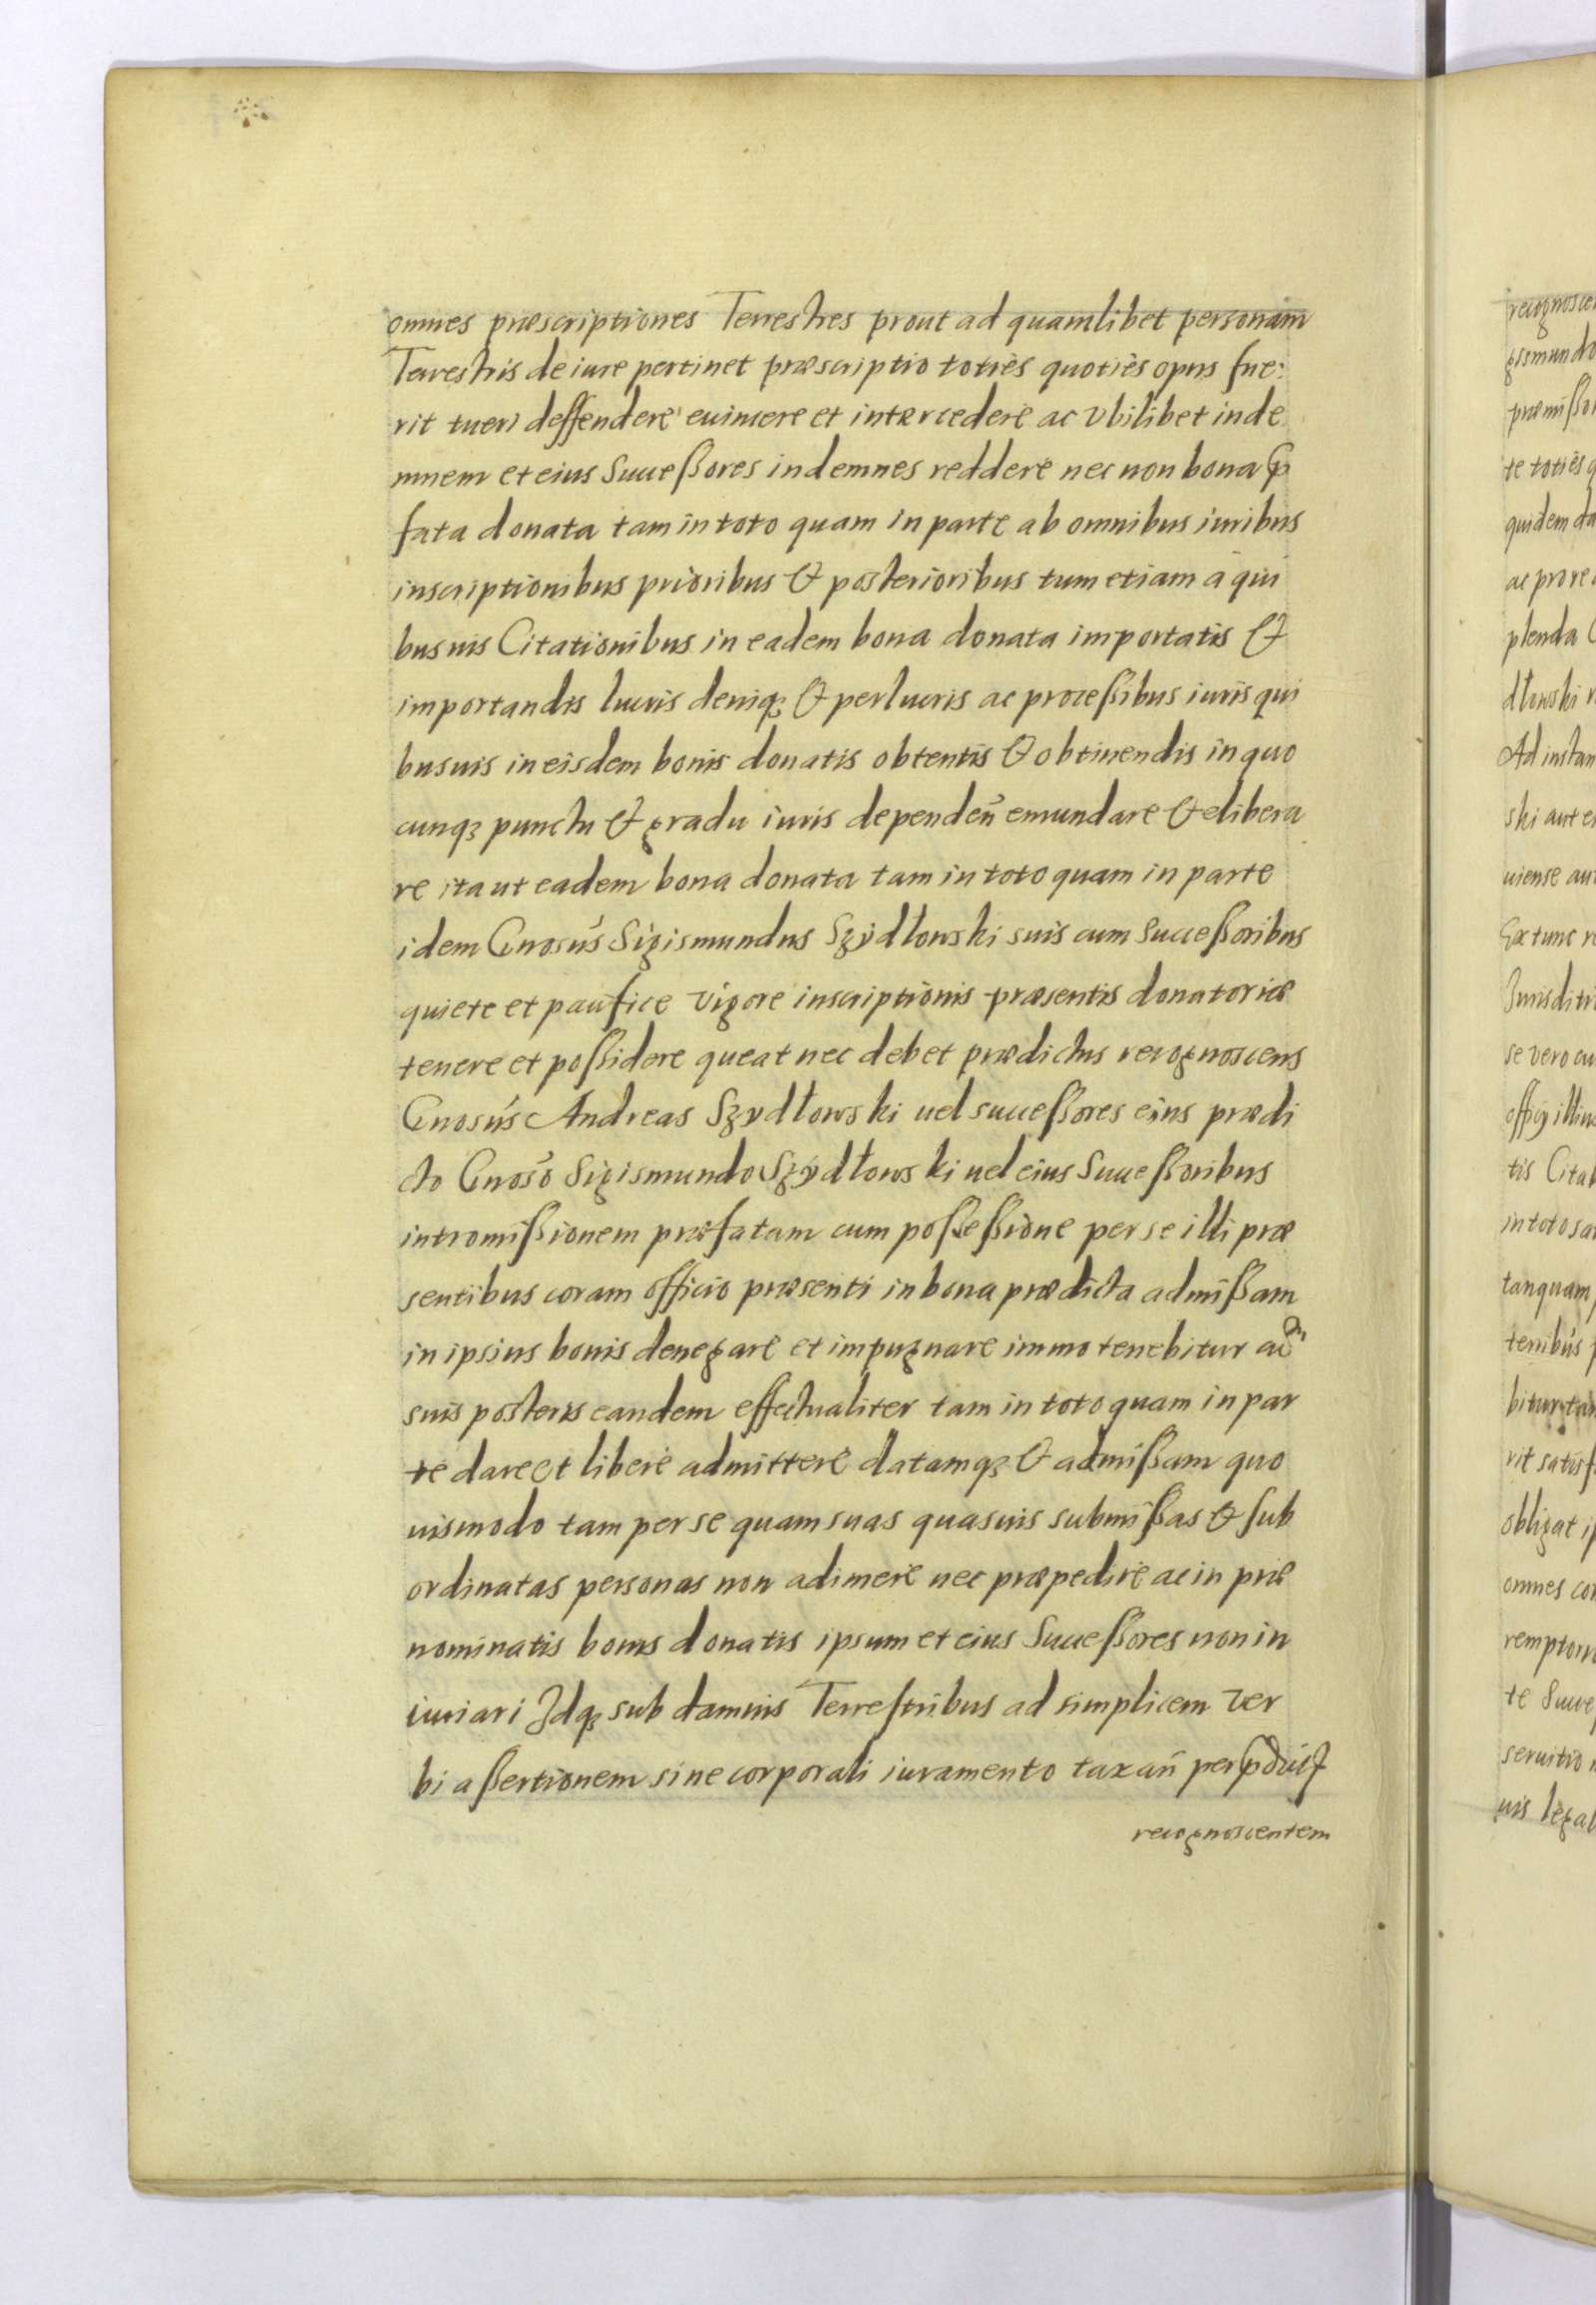 omnes præscriptiones Terrestres prout ad quamlibet personam
Terrestris de iure pertinet præscriptio totiès quotiès opus fue:
rit tueri deffendere euincere et intercedere ac Vbilibet inde
mnem et eius Successores indemnes reddere nec non bona p̃
fata donata tam in toto quam in parte ab omnibus iuribus
inscriptionibus prioribus & posterioribus tum etiam à qui
busuis Citationibus in eadem bona donata importatis &
importandis lucris deniq3 & perlucris ac processibus iuris qui
busuis in eisdem bonis donatis obtentis & obtinendis in quo
cunq3 punctu & gradu iuris dependeñ emundare & elibera
re ita ut eadem bona donata tam in toto quam in parte
idem Gnosús Sigismundus Szÿdłowski suis cum Successoribus
quiete et paufice vigore inscriptionis præsentis donatoriæ
tenere et possidere queat nec debet prædictus recognoscens
Gnosús Andreas Szydłowski uel successores eius prædi
cto Gnosó Sigismundo Szÿdłowski uel eius Successoribus
intromissionem præfatam cum possessione per se illi præ
sentibus coram officio præsenti in bona prædicta admissam
in ipsius bonis denegare et impugnare immo tenebitur
suis posteris eandem effectualiter tam in toto quam in par
te dare et libere admittere datamq3 & admissam quo
uismodo tam per se quam suas quasuis submissas & sub
ordinatas personas non adimere nec præpedire ac in præ
nominatis bonis donatis ipsum et eius Successores non in
iuriari Idq3 sub damnis Terrestribus ad simplicem ver
bi assertionem sine corporali iuramento taxañ per
recognoscentem
recognosce
gismundo
præmisso
te totiès q
quidem da
ac pro re
plenda
dłowski
Ad instan
ski aut e
uiense au
Ex tunc r
Iurisditi
se vero cu
officÿ illius
tis Citat
in toto sa
tanquam
tenibús
bitur ta
rit satisf
obligat i
omnes co
remptor
te Succe
seruitio
uis legal